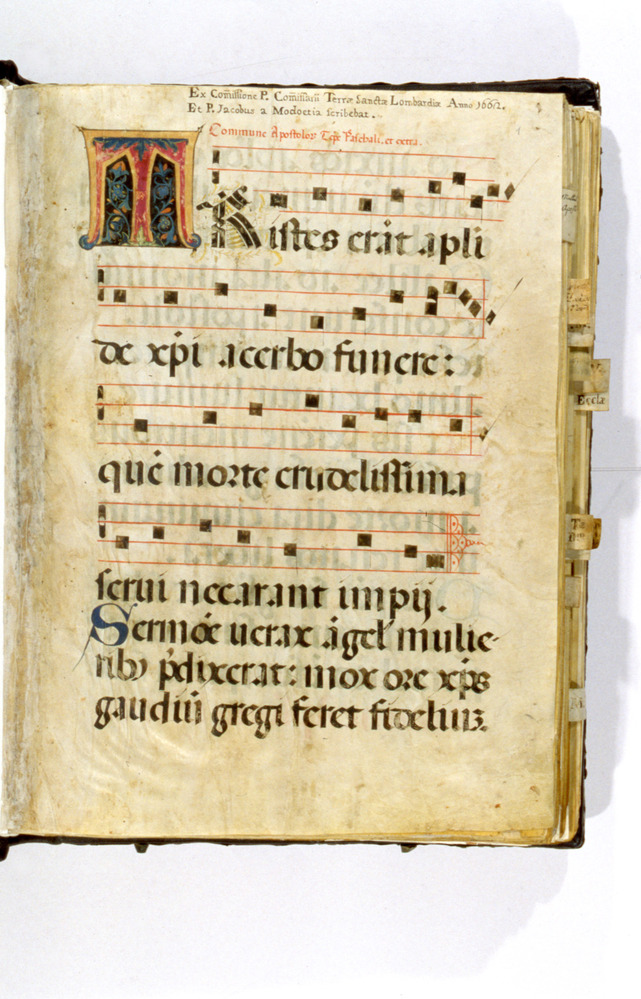 Ex Com̄issione P. Com̄issarii Terræ Sanctæ Lombardiæ Anno 1661/2.
Et P. Jacobus a Modoetia scribebat.
Commune Apostoloꝝ Tēpe Paschali, et extra.
TRistes erāt apli
de xp̄i acerbo funere:
quē morte crudelissima
serui necarant impij.
Sermōe uerax āgel' mulie-
ribꝯ p̄dixerat: mox ore xp̄s
gaudiū gregi feret fideliuꝫ.
Ecclæ